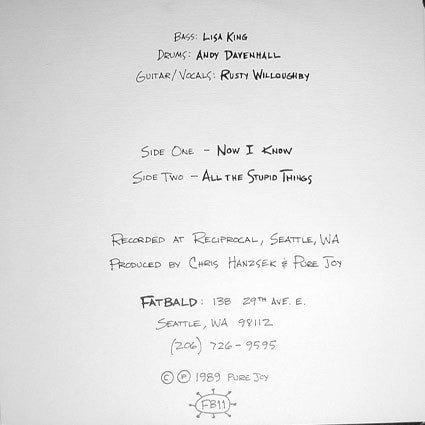 Bass: Lisa King
Drums: Andy Davenhall
Guitar/Vocals: Rusty Willoughby
Side One – Now I Know
Side Two – All the Stupid Things
Recorded at Reciprocal, Seattle, WA
Produced by Chris Hanzsek & Pure Joy
Fatbald: 138 29th Ave. E.
Seattle, WA 98112
(206) 726-9595
© ℗ 1989 Pure Joy
FB11